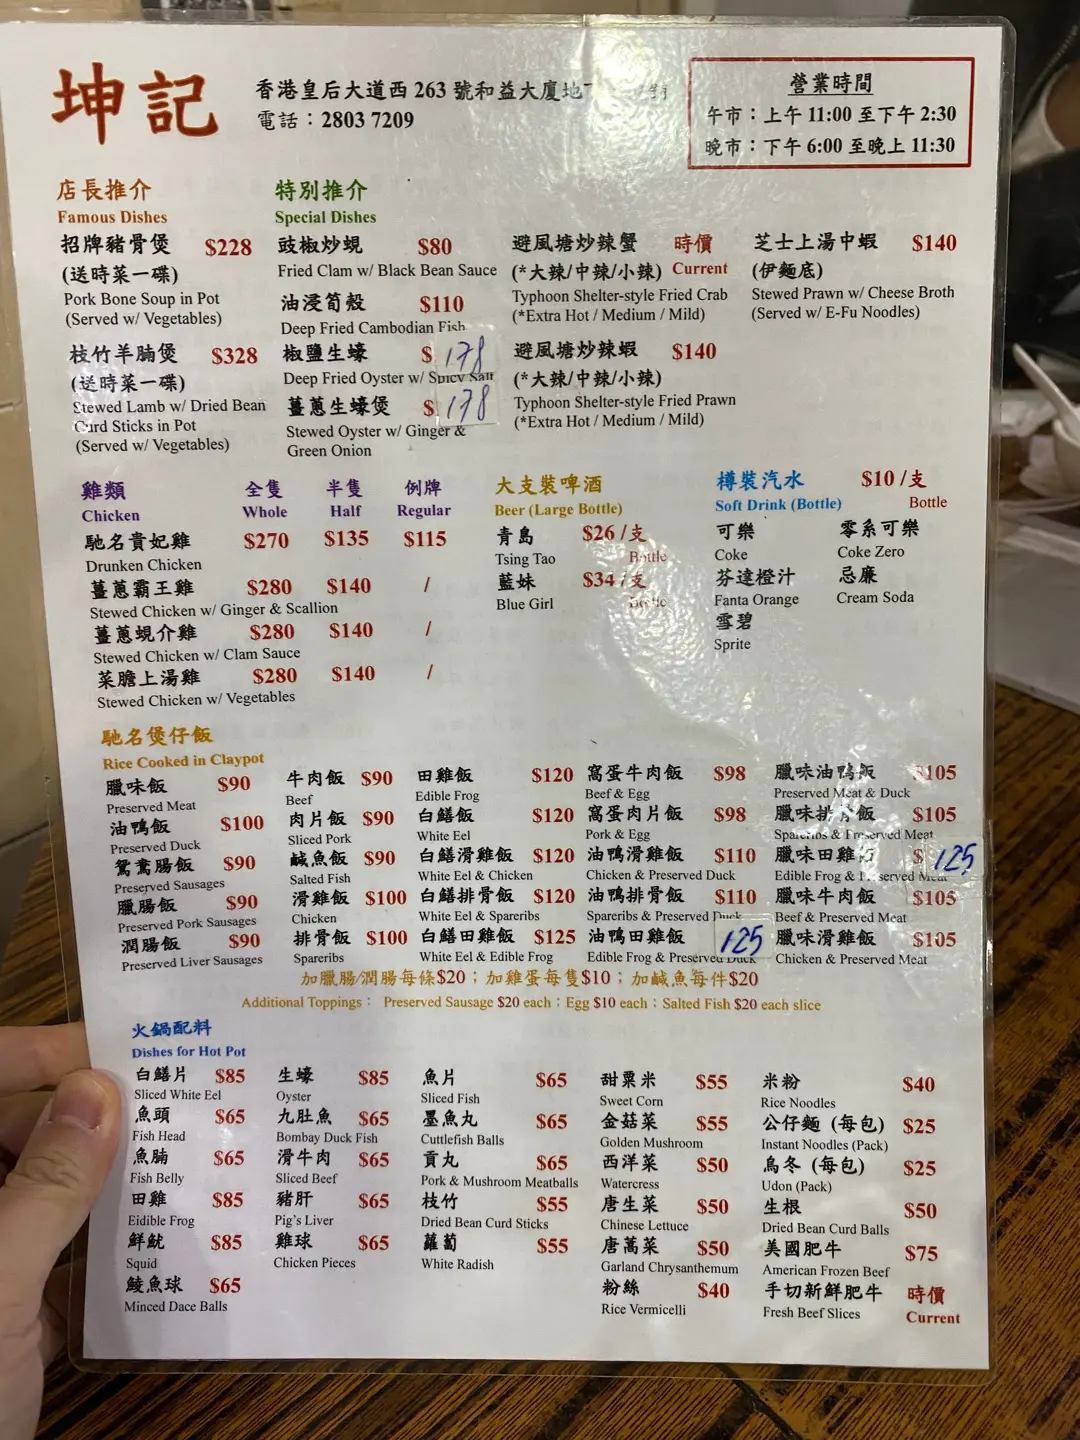 坤記
香港皇后大道西 263 號和益大廈地
電話：2803 7209
營業時間
午市：上午 11:00 至下午 2:30
晚市：下午 6:00 至晚上 11:30
店長推介
Famous Dishes
招牌豬骨煲 $228
(送時菜一碟)
Pork Bone Soup in Pot
(Served w/ Vegetables)
枝竹羊腩煲 $328
(送時菜一碟)
Stewed Lamb w/ Dried Bean
Curd Sticks in Pot
(Served w/ Vegetables)
特別推介
Special Dishes
豉椒炒蜆 $80
Fried Clam w/ Black Bean Sauce
油浸筍殼 $110
Deep Fried Cambodian Fish
椒鹽生蠔 $ 178
Deep Fried Oyster w/ Spicy Salt
薑蔥生蠔煲 $ 178
Stewed Oyster w/ Ginger &
Green Onion
避風塘炒辣蟹 時價
(*大辣/中辣/小辣) Current
Typhoon Shelter-style Fried Crab
(*Extra Hot / Medium / Mild)
避風塘炒辣蝦 $140
(*大辣/中辣/小辣)
Typhoon Shelter-style Fried Prawn
(*Extra Hot / Medium / Mild)
芝士上湯中蝦 $140
(伊麵底)
Stewed Prawn w/ Cheese Broth
(Served w/ E-Fu Noodles)
雞類 全隻 半隻 例牌
Chicken Whole Half Regular
馳名貴妃雞 $270 $135 $115
Drunken Chicken
薑蔥霸王雞 $280 $140 /
Stewed Chicken w/ Ginger & Scallion
薑蔥蜆介雞 $280 $140 /
Stewed Chicken w/ Clam Sauce
菜膽上湯雞 $280 $140 /
Stewed Chicken w/ Vegetables
大支裝啤酒
Beer (Large Bottle)
青島 $26 /支
Tsing Tao Bottle
藍妹 $34 /支
Blue Girl Bottle
樽裝汽水 $10 /支
Soft Drink (Bottle) Bottle
可樂 零系可樂
Coke Coke Zero
芬達橙汁 忌廉
Fanta Orange Cream Soda
雪碧
Sprite
馳名煲仔飯
Rice Cooked in Claypot
臘味飯 $90
Preserved Meat
油鴨飯 $100
Preserved Duck
鴛鴦腸飯 $90
Preserved Sausages
臘腸飯 $90
Preserved Pork Sausages
潤腸飯 $90
Preserved Liver Sausages
牛肉飯 $90
Beef
肉片飯 $90
Sliced Pork
鹹魚飯 $90
Salted Fish
滑雞飯 $100
Chicken
排骨飯 $100
Spareribs
田雞飯 $120
Edible Frog
白鱔飯 $120
White Eel
白鱔滑雞飯 $120
White Eel & Chicken
白鱔排骨飯 $120
White Eel & Spareribs
白鱔田雞飯 $125
White Eel & Edible Frog
窩蛋牛肉飯 $98
Beef & Egg
窩蛋肉片飯 $98
Pork & Egg
油鴨滑雞飯 $110
Chicken & Preserved Duck
油鴨排骨飯 $110
Spareribs & Preserved Duck
油鴨田雞飯 125
Edible Frog & Preserved Duck
臘味油鴨飯 $105
Preserved Meat & Duck
臘味排骨飯 $105
Spareribs & Preserved Meat
臘味田雞飯 $ 125
Edible Frog & Preserved Meat
臘味牛肉飯 $105
Beef & Preserved Meat
臘味滑雞飯 $105
Chicken & Preserved Meat
加臘腸/潤腸每條$20；加雞蛋每隻$10；加鹹魚每件$20
Additional Toppings： Preserved Sausage $20 each；Egg $10 each；Salted Fish $20 each slice
火鍋配料
Dishes for Hot Pot
白鱔片 $85
Sliced White Eel
魚頭 $65
Fish Head
魚腩 $65
Fish Belly
田雞 $85
Eidible Frog
鮮魷 $85
Squid
鯪魚球 $65
Minced Dace Balls
生蠔 $85
Oyster
九肚魚 $65
Bombay Duck Fish
滑牛肉 $65
Sliced Beef
豬肝 $65
Pig's Liver
雞球 $65
Chicken Pieces
魚片 $65
Sliced Fish
墨魚丸 $65
Cuttlefish Balls
貢丸 $65
Pork & Mushroom Meatballs
枝竹 $55
Dried Bean Curd Sticks
蘿蔔 $55
White Radish
甜粟米 $55
Sweet Corn
金菇菜 $55
Golden Mushroom
西洋菜 $50
Watercress
唐生菜 $50
Chinese Lettuce
唐蒿菜 $50
Garland Chrysanthemum
粉絲 $40
Rice Vermicelli
米粉 $40
Rice Noodles
公仔麵 (每包) $25
Instant Noodles (Pack)
烏冬 (每包) $25
Udon (Pack)
生根 $50
Dried Bean Curd Balls
美國肥牛 $75
American Frozen Beef
手切新鮮肥牛 時價
Fresh Beef Slices Current